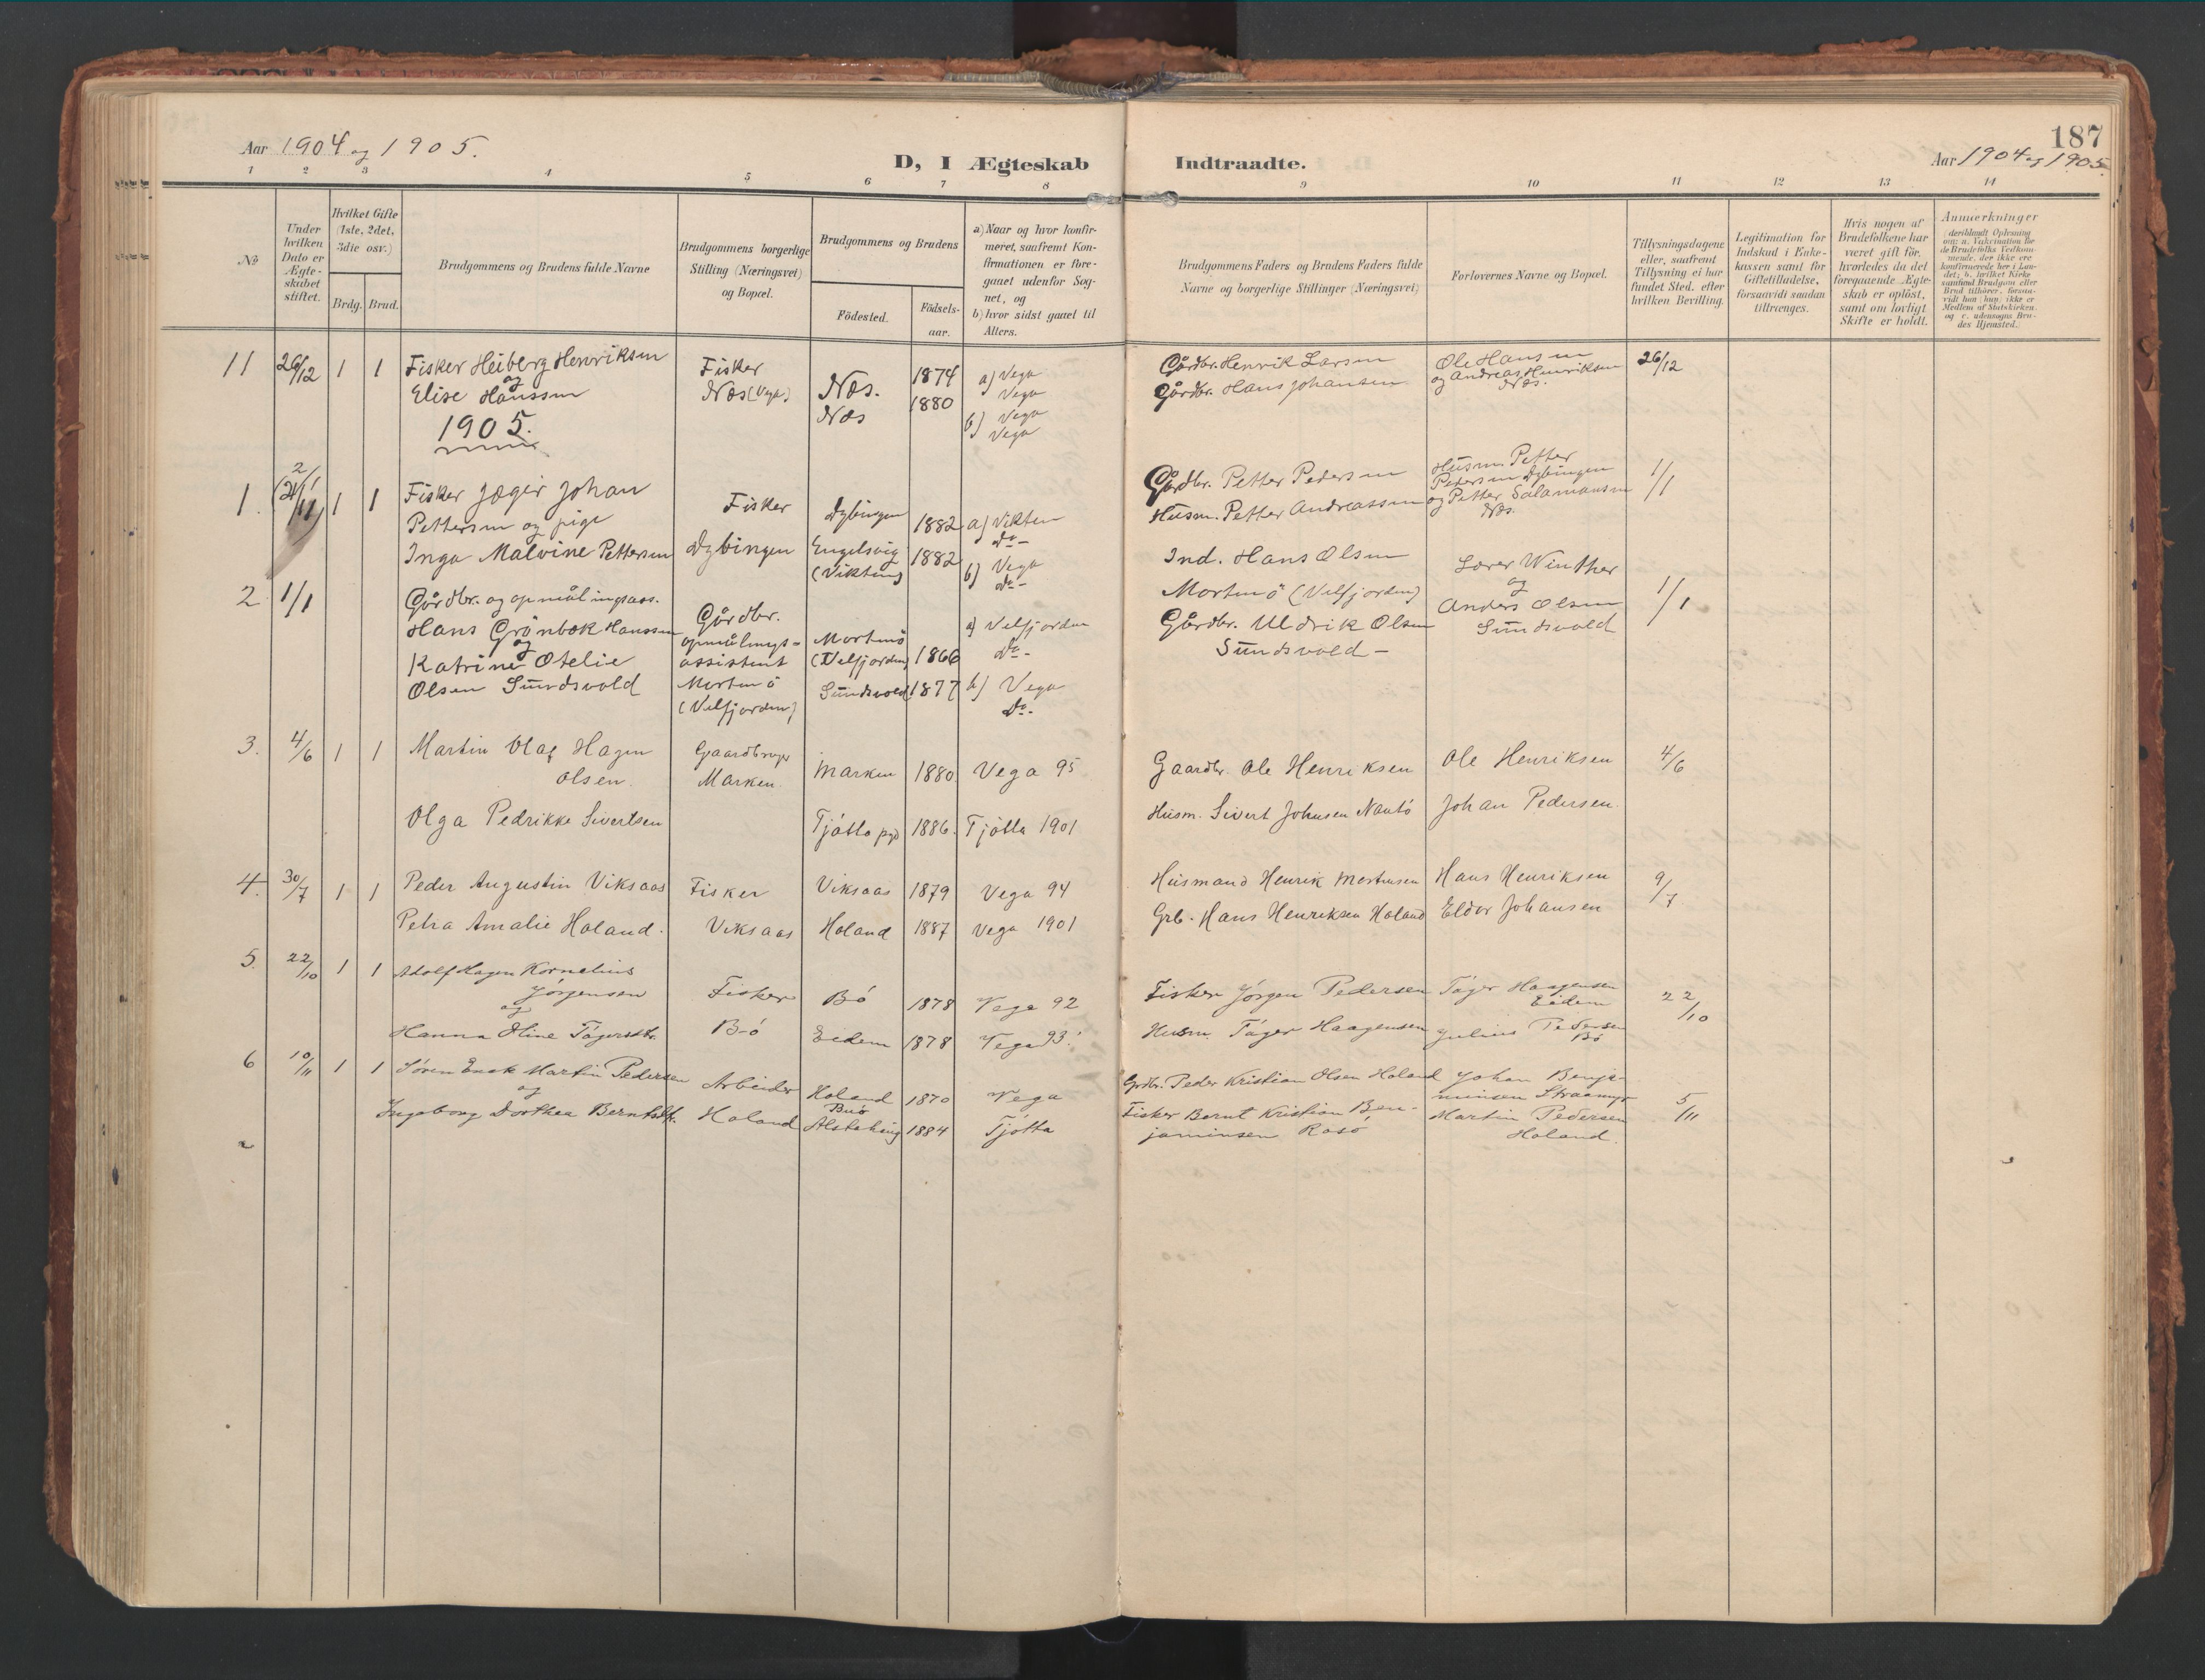 187
Aar 1904 og 1905.
D, I Ægteskab Indtraadte.
Aar 1904 og 1905
1 2 3 4 5 6 7 8 9 10 11 12 13 14
№
Under hvilken Dato er Ægte-skabet stiftet.
Hvilket Gifte (1ste, 2det, 3die osv.)
Brdg. Brud.
Brudgommens og Brudens fulde Navne
Brudgommens borgerlige Stilling (Næringsvei) og Bopæl.
Brudgommens og Brudens
Födested.
Födsels-aar.
a) Naar og hvor konfir-meret, saafremt Kon-firmationen er fore-gaaet udenfor Sog-net, og
b) hvor sidst gaaet til Alters.
Brudgommens Faders og Brudens Faders fulde Navne og borgerlige Stillinger (Næringsvei)
Forlovernes Navne og Bopæl.
Tillysningsdagene eller, saafremt Tillysning ei har fundet Sted, efter hvilken Bevilling.
Legitimation for Indskud i Enke-kassen samt for Giftetilladelse, forsaavidt saadan tiltrænges.
Hvis nogen af Brudefolkene har været gift för, hvorledes da det foregaaende Ægte-skab er oplöst, samt om lovligt Skifte er holdt.
Anmerkninger (deriblandt Oplysning om: a. Vakcination for de Brudefolks Vedkom-mende, der ikke ere konfirmerede her i Lan-det; b. hvilket Kirke-samfund Brudgom eller Brud tilhörer, forsaa-vidt han (hun) ikke er Medlem af Statskirken, og c. udensogns Bru-des Hjemsted.
11 26/12 1 1 Fisker Heiberg Henriksen
og
Elise Hanssen
Fisker
Næs (Vega)
Næs. 1874
Næs 1880
a) Vega
Vega
b) Vega
Vega
Gårdbr. Henrik Larsen
Gårdbr. Hans Johansen
Ole Hansen
og Andreas Henriksen
Næs.
26/12
1905.
1. 2/1 1 1 Fisker Jægir Johan
Pettersen og pige
Inga Malvine Pettersen
Fisker
Dybingen
Dybingen 1882
Engelsvig 1882
(Vikten)
a) Vikten
Do-
b) Vega
Do-
Gårdbr. Petter Pedersen
Husm. Petter Andreassen
Husm. Petter
Pedersen Dybingen
og Petter Salamansen
Næs.
1/1
2 1/1 Gårdbr. og opmålingsass.
Hans Grönbæk Hanssen
og
Katrine Otelie
Olsen Sundsvold
Gårdbr.
opmålings-
assistent
Mortenö
(Velfjorden)
Mortenö
(Velfjorden) 1866
Sundsvold 1877
a) Velfjorden
Do-
b) Vega
Do-
Ind. Hans Olsen
Mortenö (Velfjorden)
Gårdbr. Uldrik Olsen
Sundsvold -
Lærer Winther
og
Anders Olsen
Sundsvold
1/1
3. 4/6 1 1 Martin Olaf Hagen
Olsen.
Gaardbruger
Marken.
Marken 1880 Vega 95
Gaardbr. Ole Henriksen
Ole Henriksen
4/6
Olga Pedrikke Sivertsen
Tjötta pgd 1886. Tjötta 1901
Husm. Sivert Johnsen Nautö
Johan Pedersen.
4. 30/7 1 1 Peder Augustin Viksaas
Fisker
Viksaas 1879 Vega 94
Husmand Henrik Mortensen
Hans Henriksen
9/7
Petra Amalie Holand.
Viksaas
Holand 1887 Vega 1901
Grb. Hans Henriksen Holand
Eldor Johansen
5. 22/10 1 1 Adolf Hagen Kornelius
Jörgensen
og
Fisker
Bö 1878 Vega 92
Fisker Jörgen Pedersen
Töger Haagensen
Eidem
22/10
Hanna Oline Tögersdtr.
Bö
Eidem 1878 Vega 93.
Husm. Töger Haagensen
Julius Pedersen
Bö
6 10/11 1 1 Sören Enok Martin Pedersen
og
Ingeborg Dorthea Berntsdt.
Arbeider
Holand
Holand 1870 Vega
Buö
Alstahaug 1884 Tjötta
Grdbr. Peder Kristian Olsen Holand
Fisker Bernt Kristian Ben-
jaminsen Rosö
Johan Benja-
minsen Straamyr
Martin Pedersen
Holand.
5/11